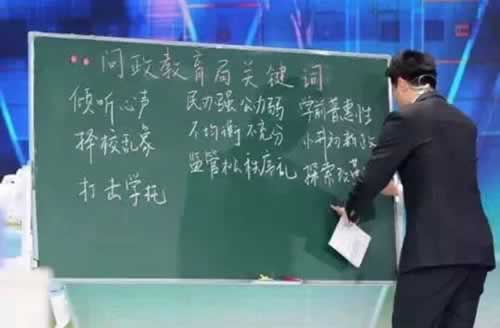 问政教育局关键词
倾听心声 民办强公办弱 学前普惠性
择校乱象 不均衡不充分 小升初新政
打击学托 监管松秩序乱 探索改革